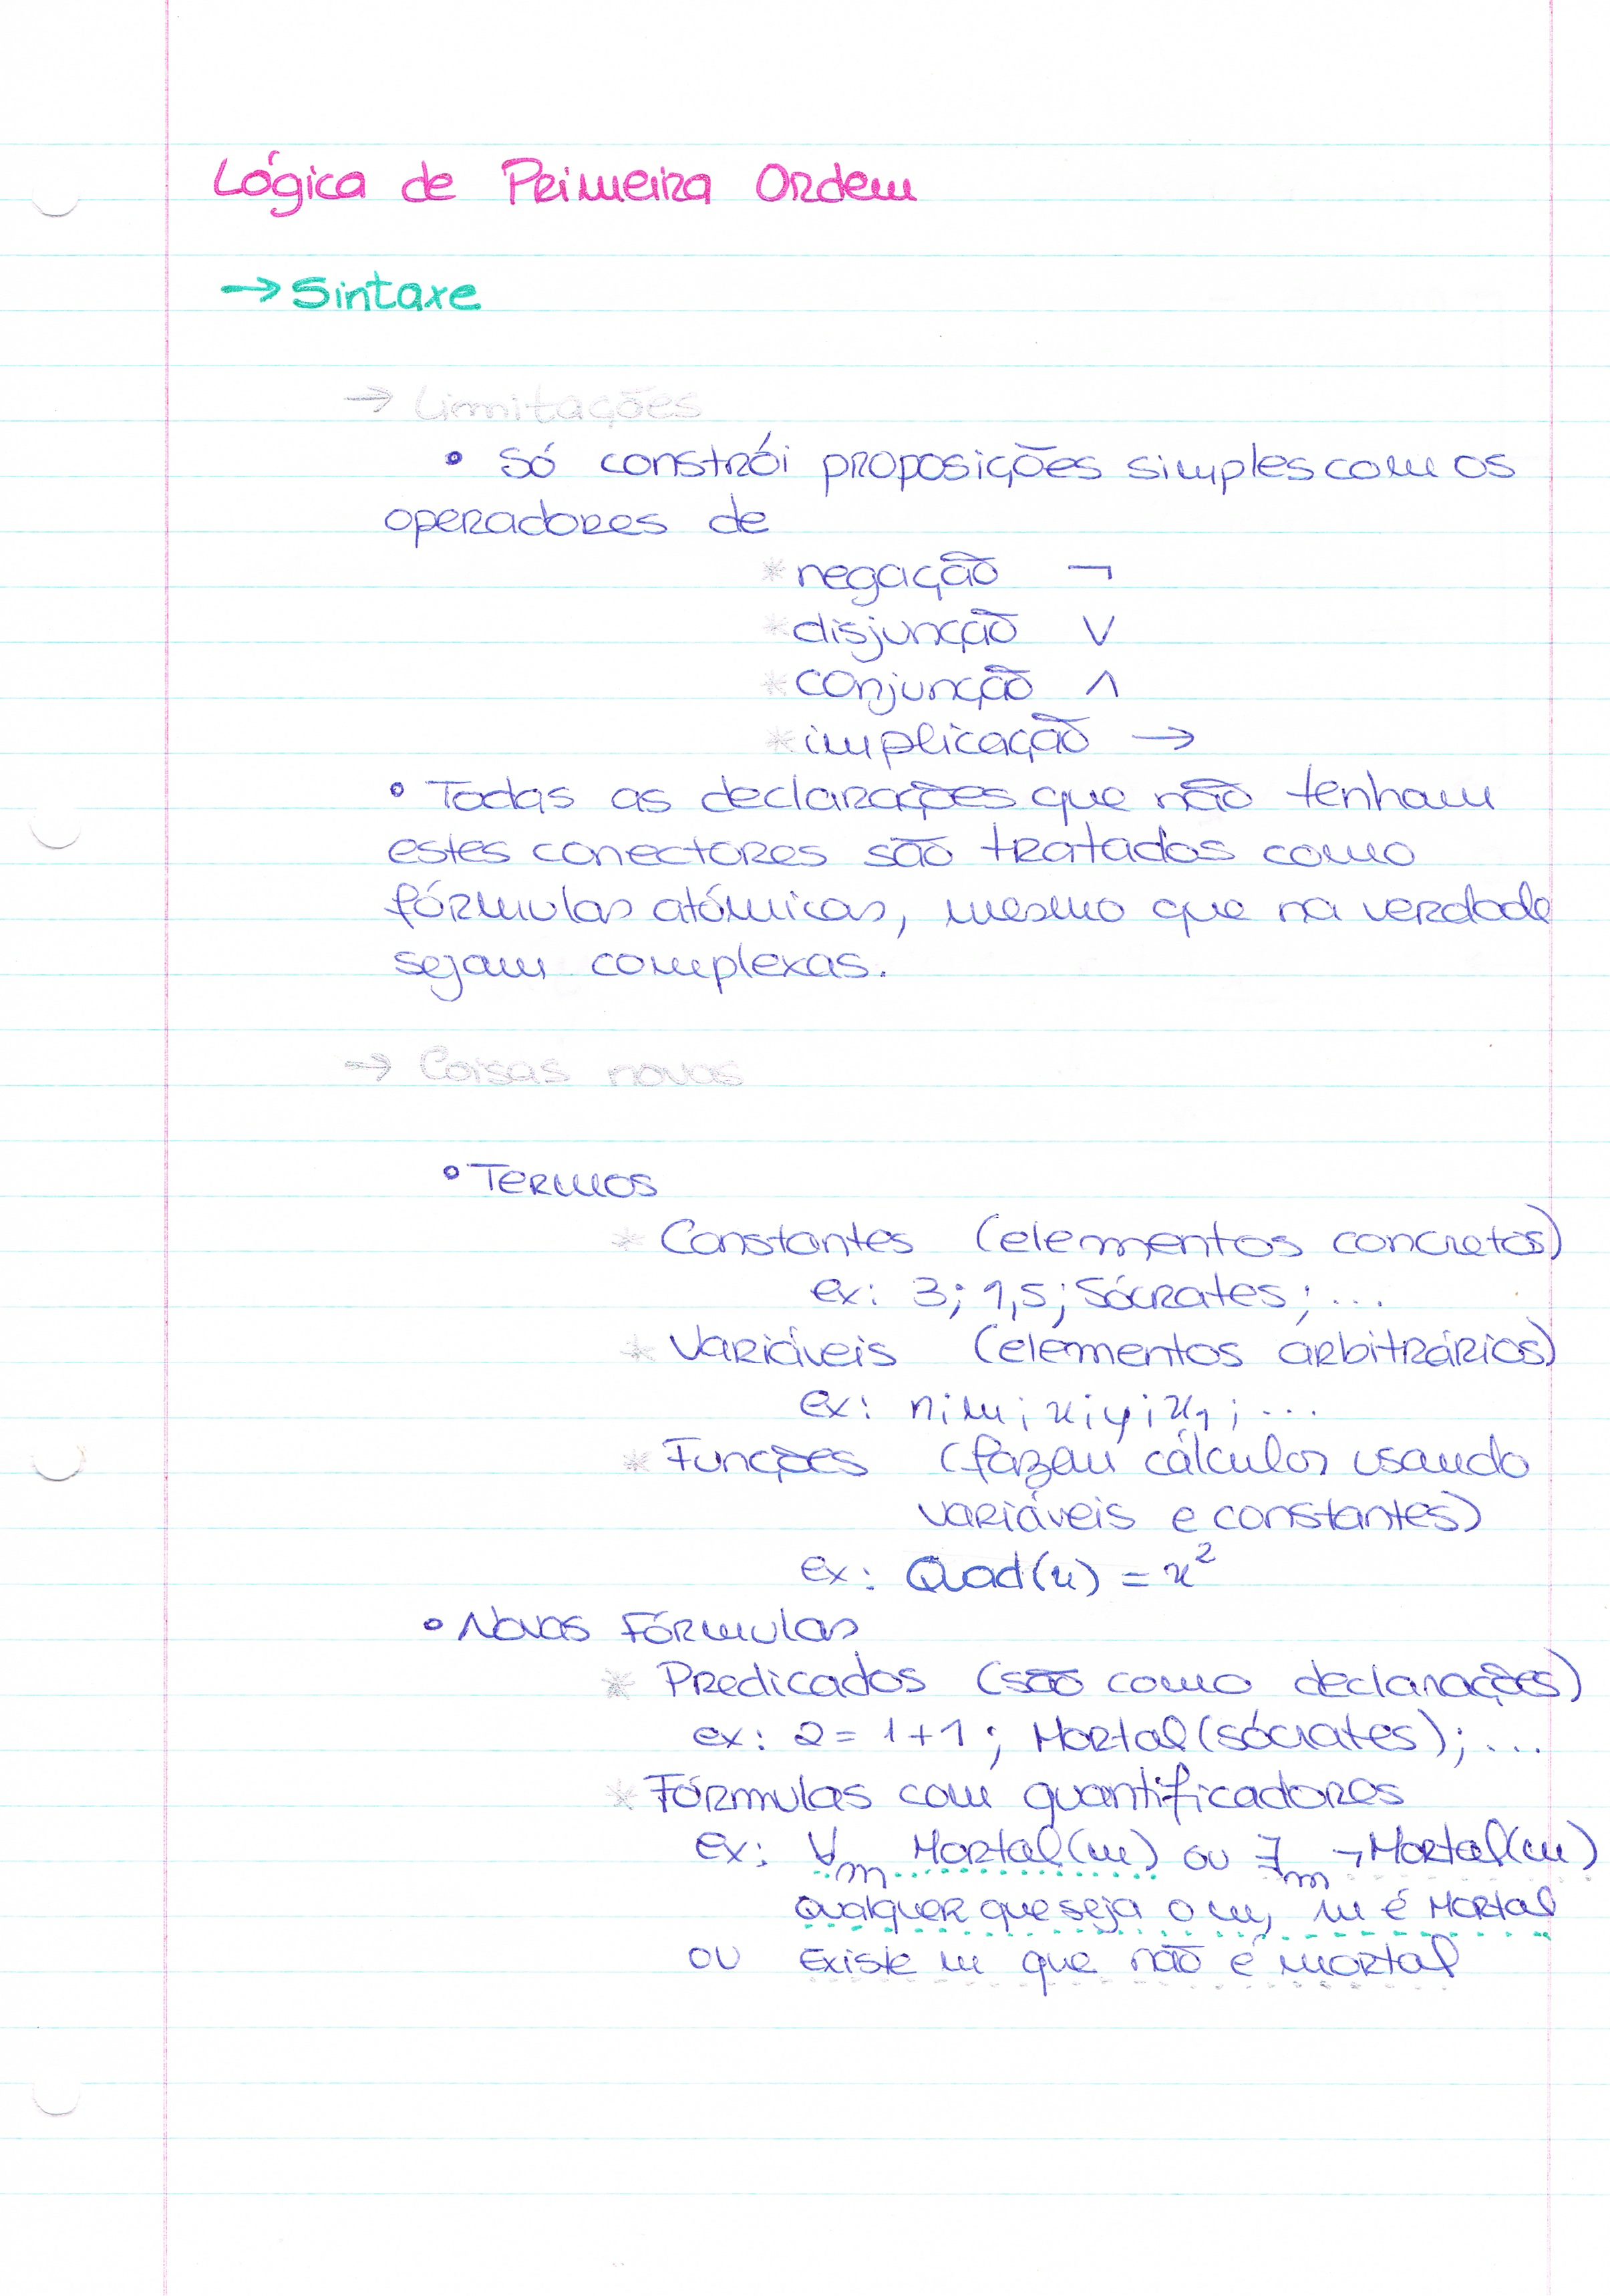 Lógica de Primeira Ordem
→ Sintaxe
→ Limitações
• Só constrói proposições simples com os
operadores de
* negação ¬
* disjunção ∨
* conjunção ∧
* implicação →
• Todas as declarações que não tenham
estes conectores são tratados como
fórmulas atómicas, mesmo que na verdade
sejam complexas.
→ Coisas novas
• Termos
* Constantes (elementos concretos)
ex: 3; 1,5; Sócrates; ...
* Variáveis (elementos arbitrários)
ex: n; m; x; y; x₁; ...
* Funções (fazem cálculos usando
variáveis e constantes)
ex: Quad(x) = x²
• Novas Fórmulas
* Predicados (são como declarações)
ex: 2 = 1+1; Mortal(sócrates); ...
* Fórmulas com quantificadores
ex: ∀m Mortal(m) ou ∃m ¬Mortal(m)
Qualquer que seja o m, m é Mortal
ou Existe m que não é mortal